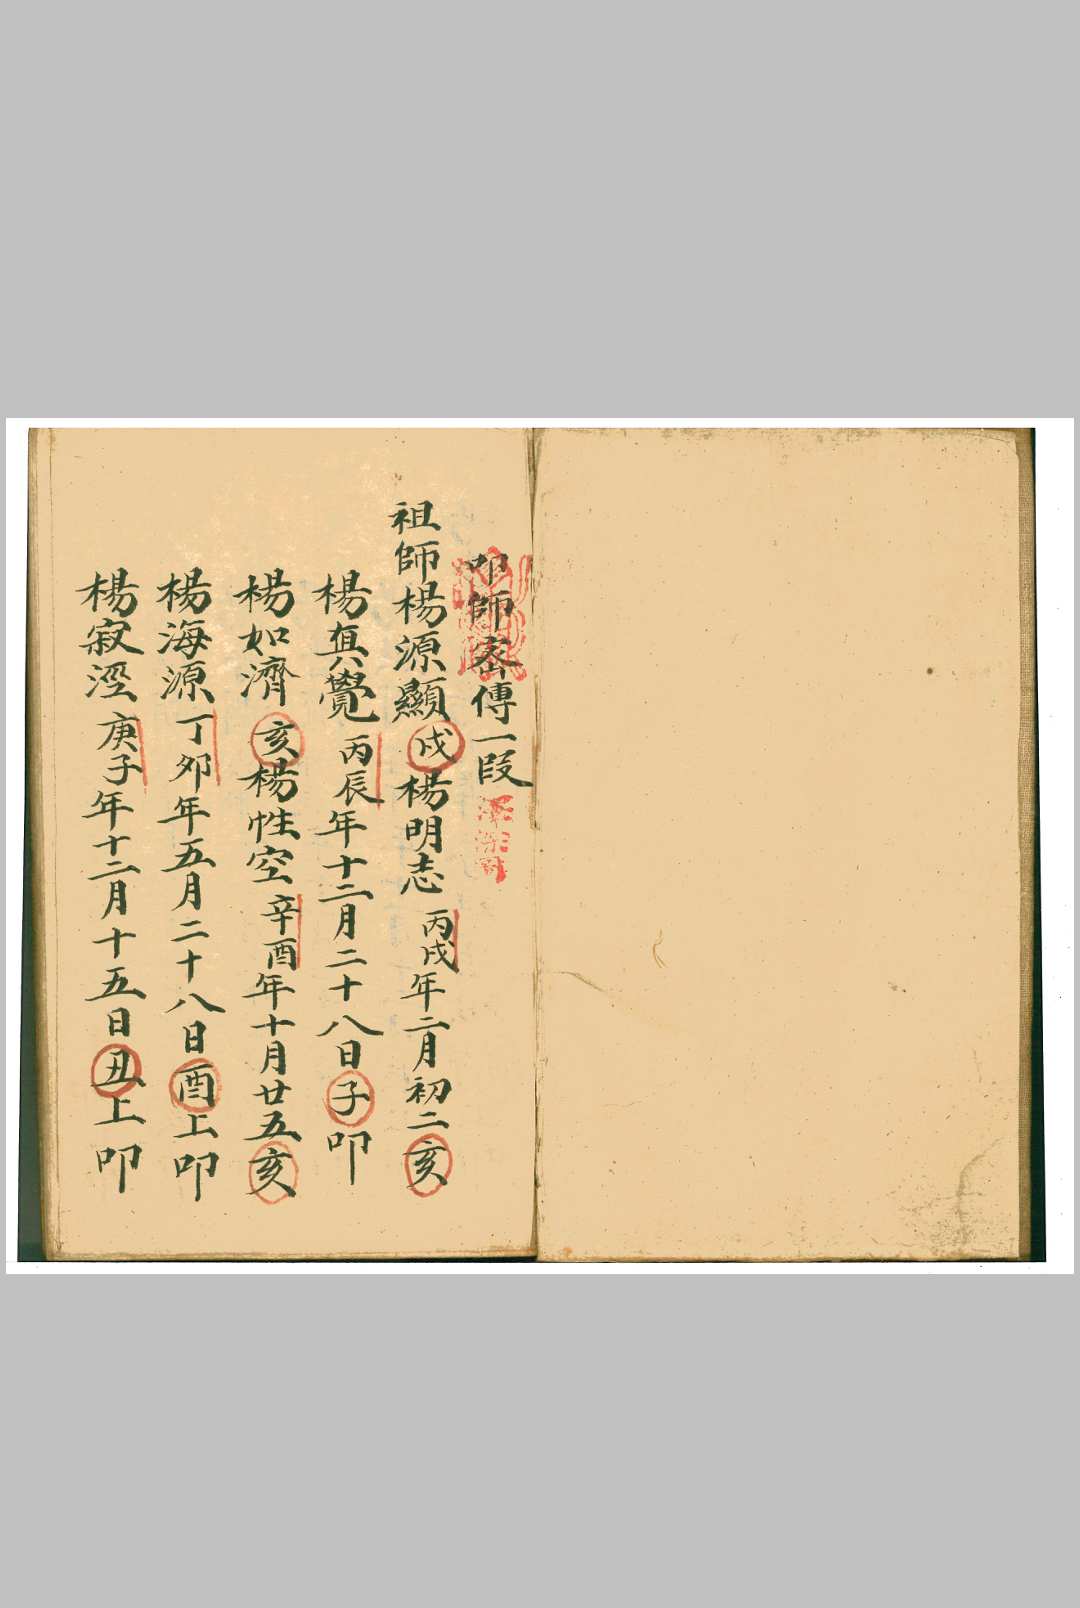 叩師密傳一段
祖師楊源顯戌楊明志丙戌年二月初二亥
楊真覺丙辰年十二月二十八日子叩
楊如濟亥楊性空辛酉年十月廿五亥
楊海源丁卯年五月二十八日酉上叩
楊寂淫庚子年十二月十五日丑上叩